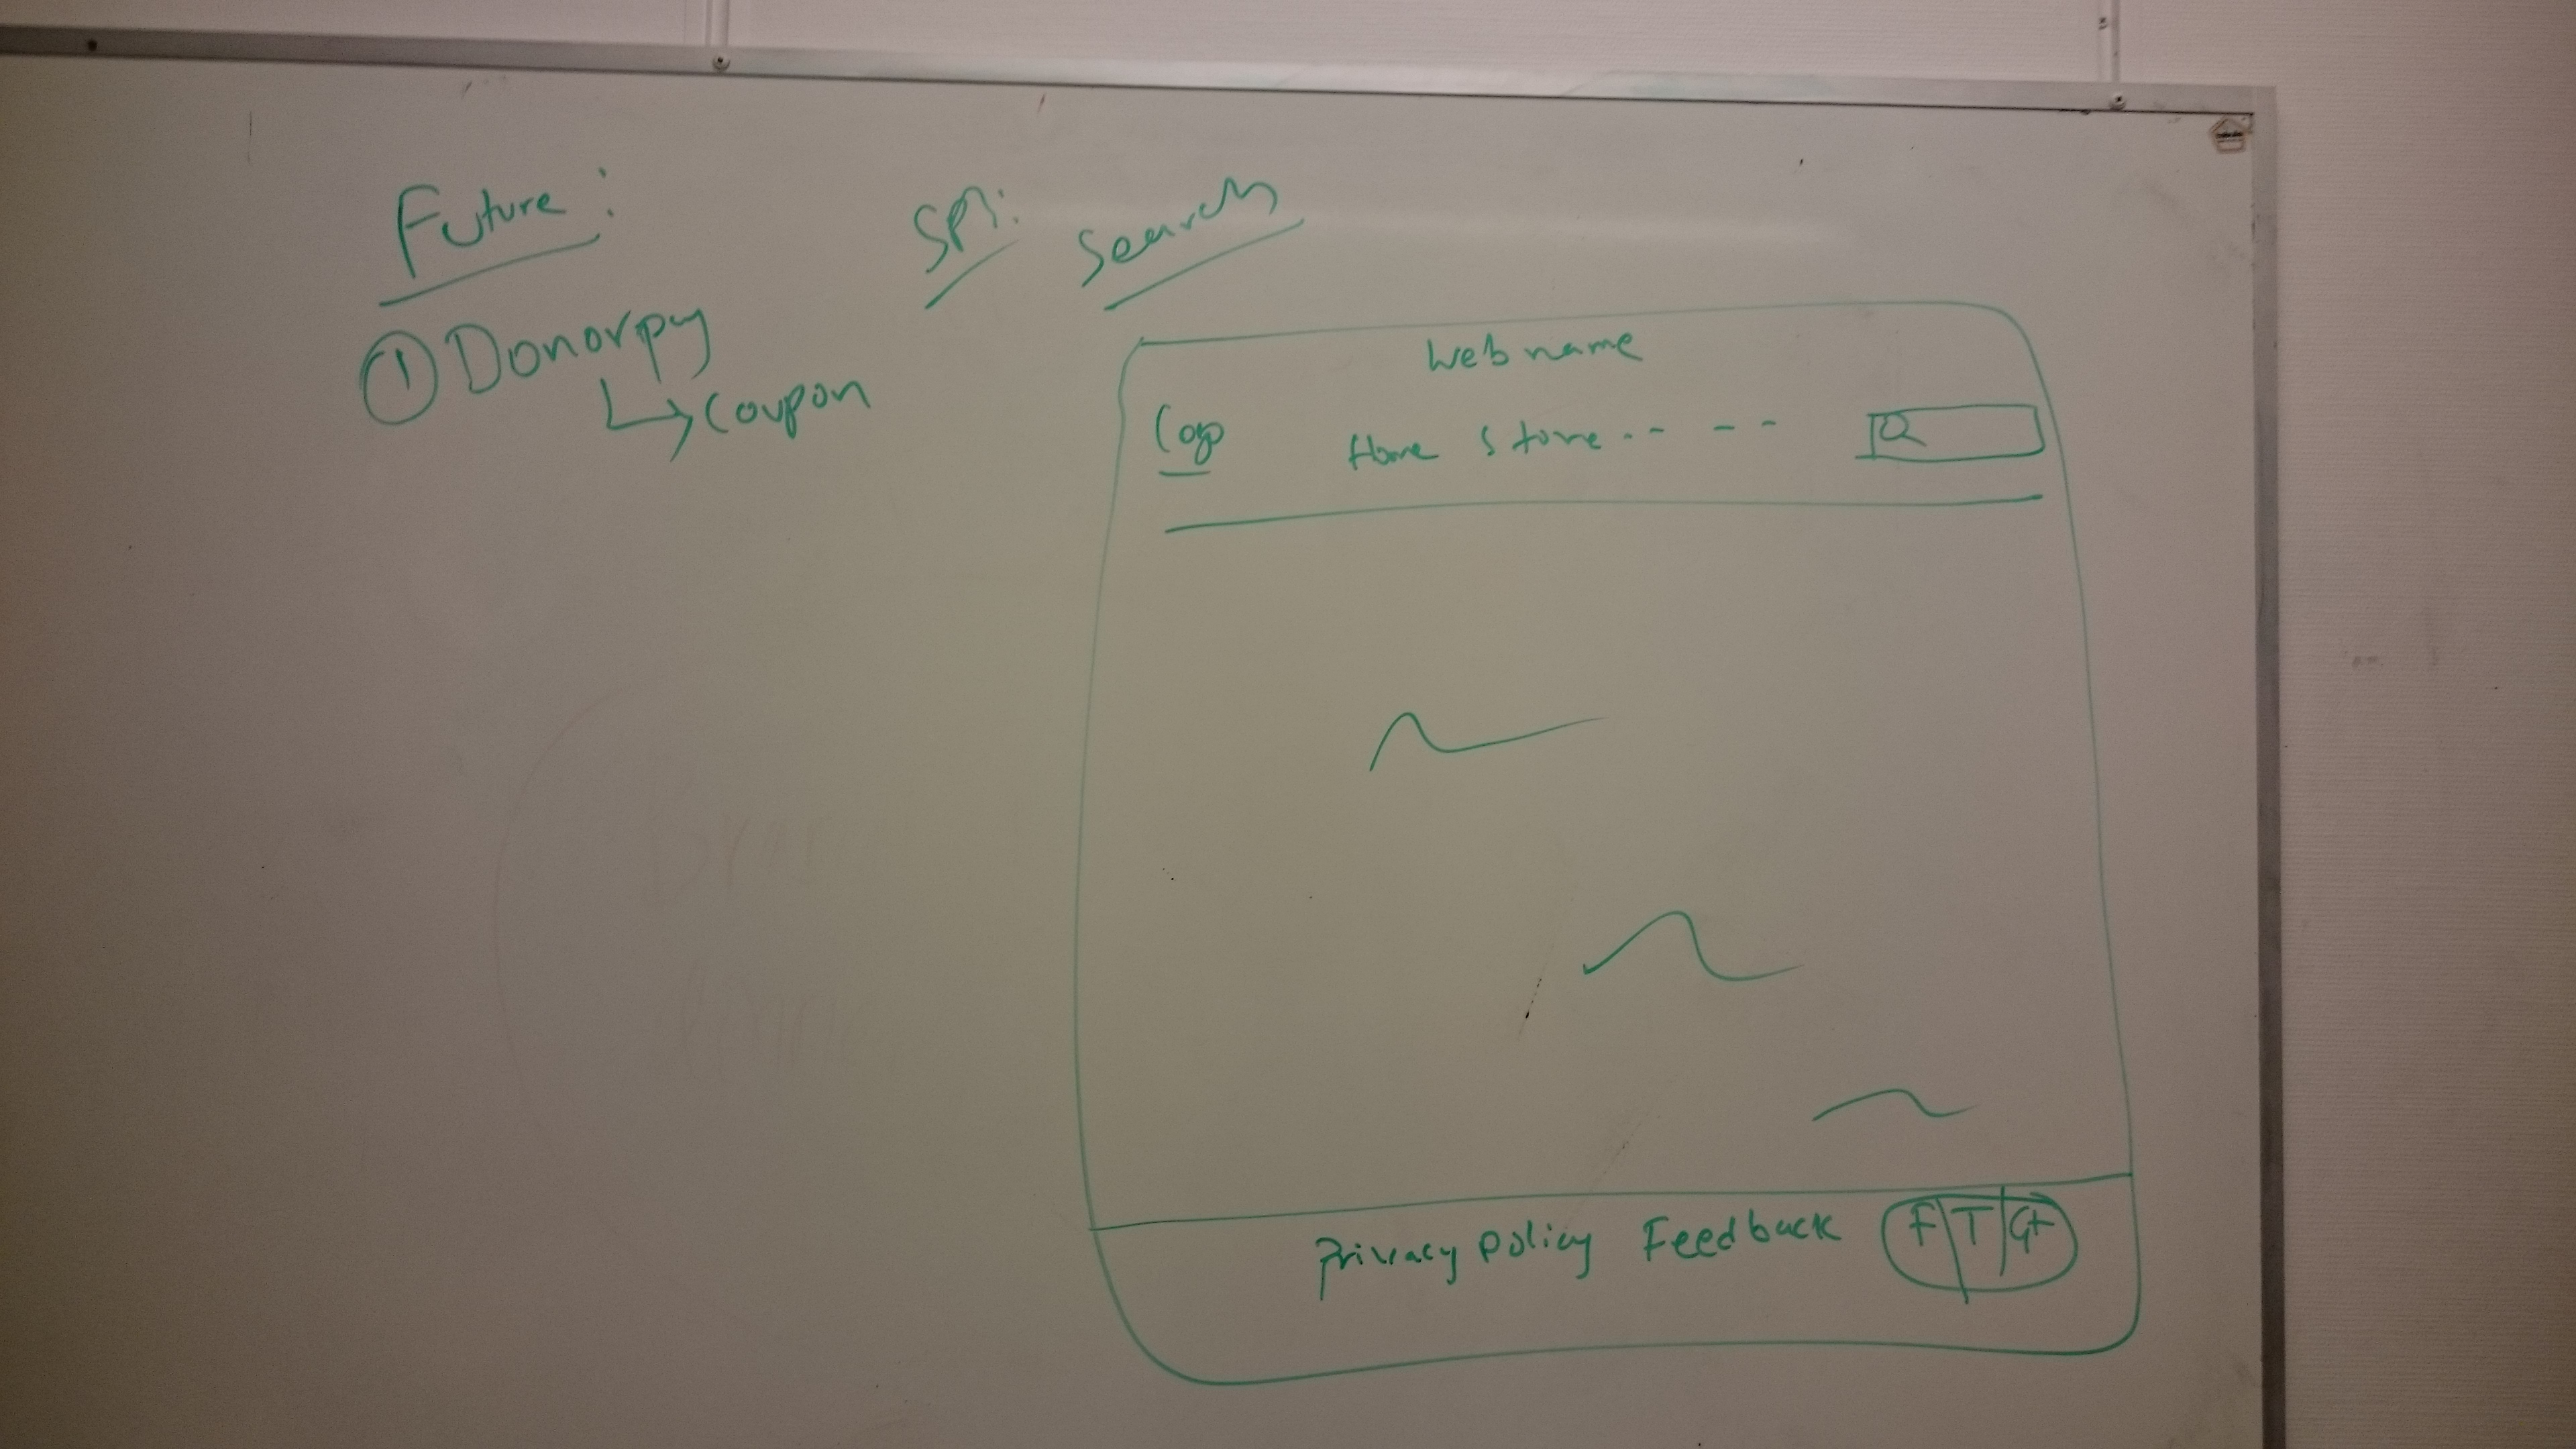 Future:
① Donorpy
↳ Coupon
SPI:
Search
Web name
Logo
Home Store -- - -
Privacy policy Feedback F T G+